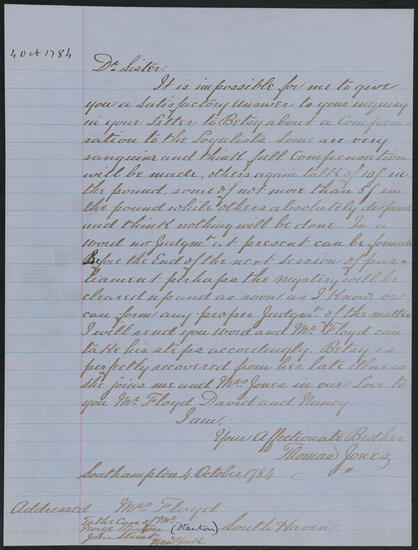 4 Oct 1784
Dr. Sister
It is impossible for me to give
you a satisfactory answer to your inquiry
in your Letter to Betsy about a Compen-
sation to the Loyalists. Some are very
sanguine and think full Compensation
will be made, others again talk of 10/ in
the pound, some of not more than 5/ in
the pound while others absolutely despond
and think nothing will be done. In a
word no Judgmt. at present can be formed
Before the End of the next Session of par-
liament perhaps the mystery will be
cleared up and as soon as I know or
can form any proper Judgmt. of the matter
I will send you word and Mr. Floyd can
take his steps accordingly. Betsy is
perfectly recovered from her late illness
she joins me and Mrs Jones in our Love to
you Mr. Floyd David and Nancy
I am,
Your Affectionate Brother
Thomas Jones
Southampton 4 October 1784
Addressed Mrs Floyd
To the Care of Mr.
George (Stanton) South Haven
John Street
New York